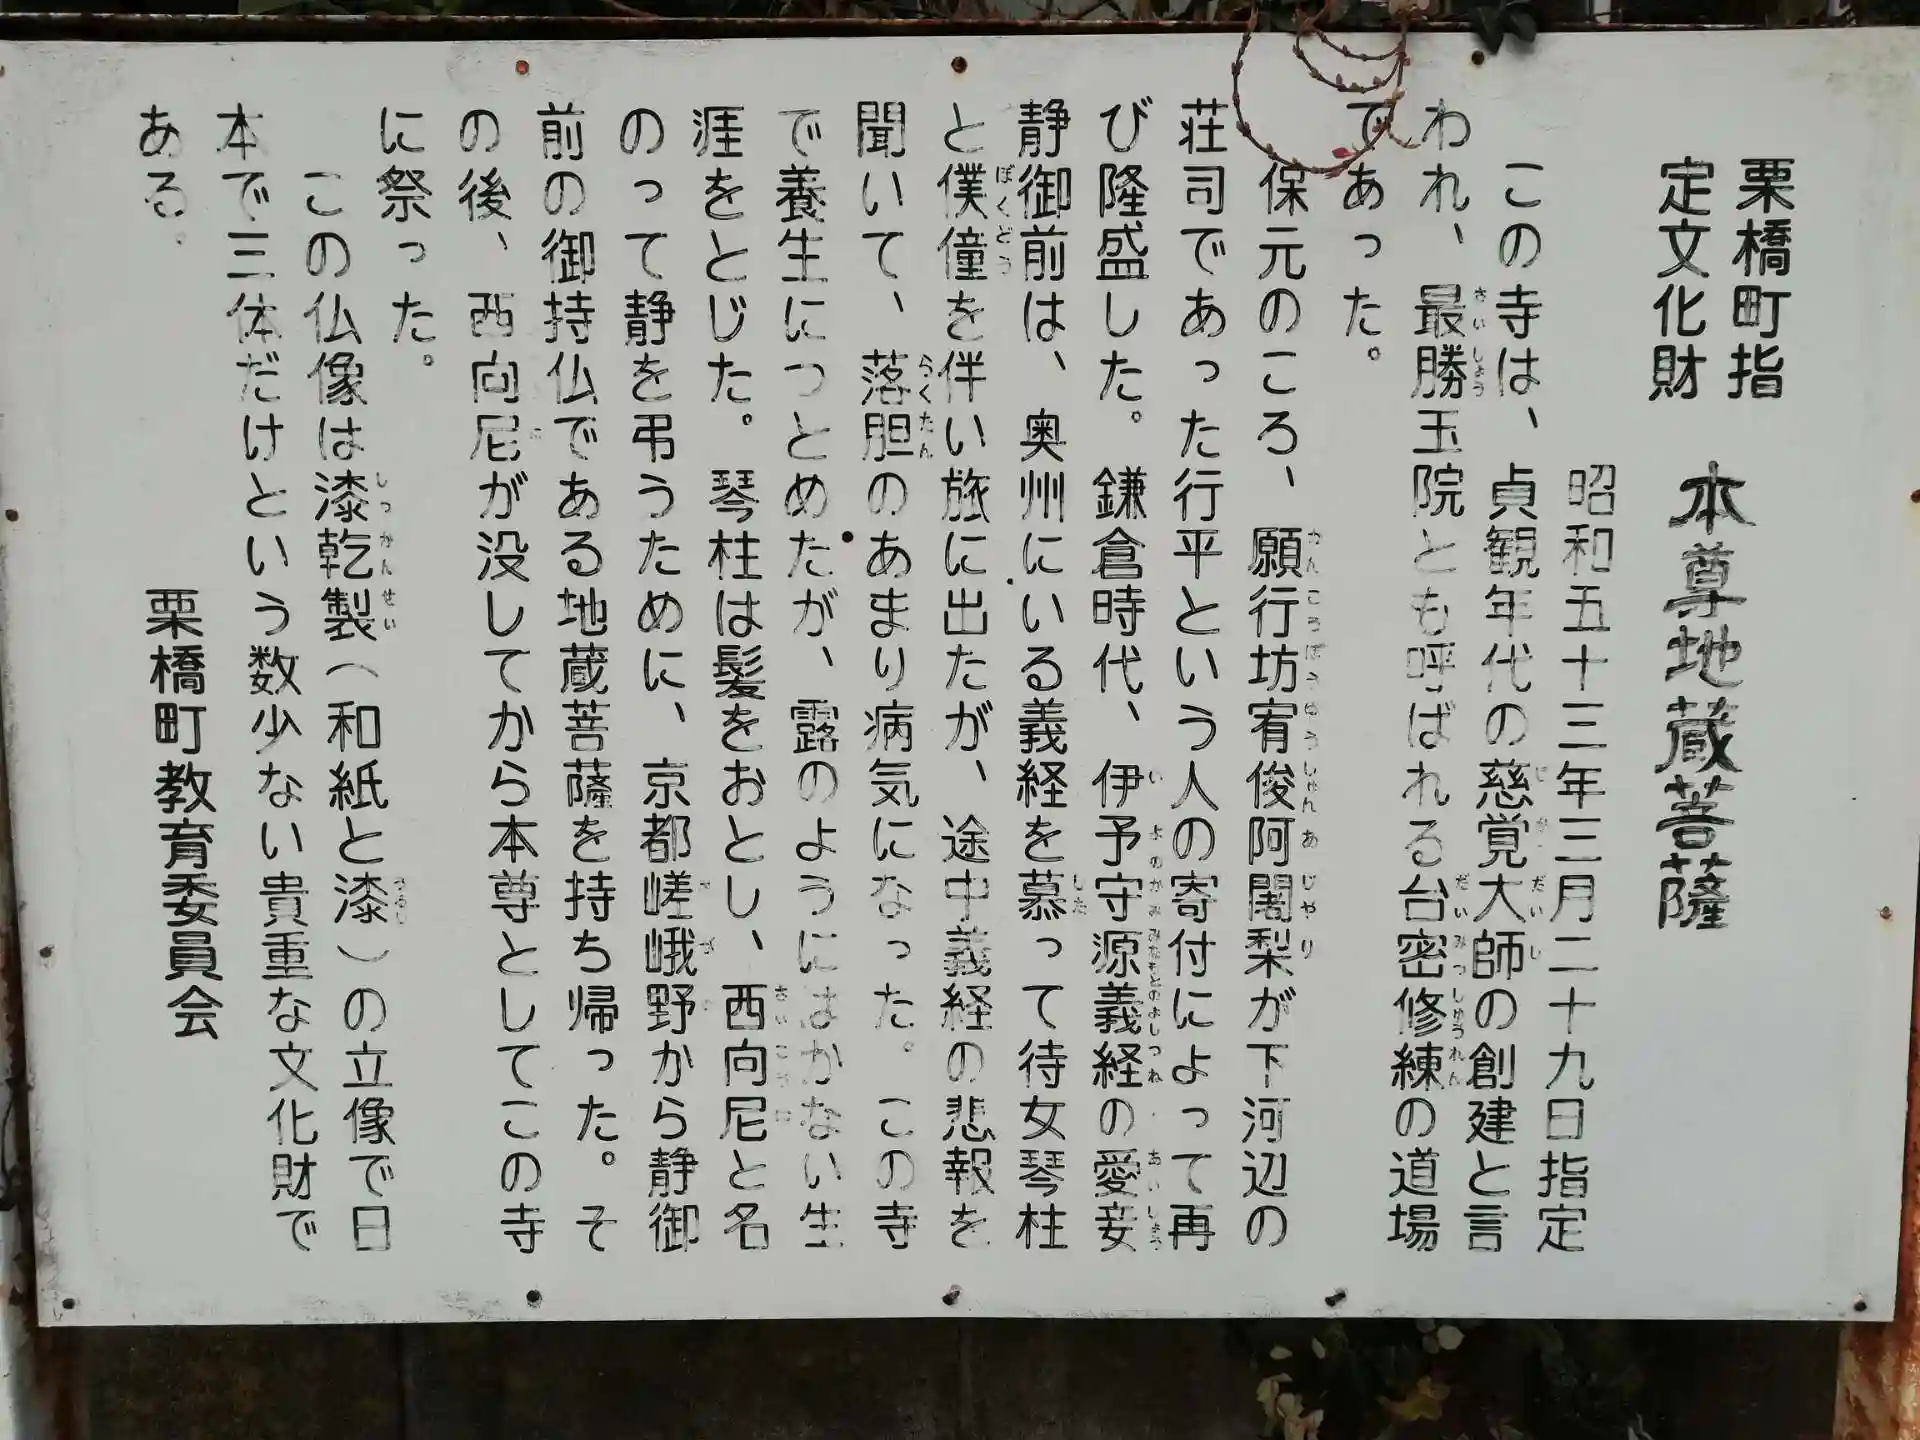 栗橋町指
定文化財
本尊地蔵菩薩
昭和五十三年三月二十九日指定
この寺は、貞観年代の慈覚大師の創建と言
われ、最勝玉院とも呼ばれる台密修練の道場
であった。
保元のころ、願行坊宥俊阿闍梨が下河辺の
荘司であった行平という人の寄付によって再
び隆盛した。鎌倉時代、伊予守源義経の愛妾
静御前は、奥州にいる義経を慕って待女琴柱
と僕僮を伴い旅に出たが、途中義経の悲報を
聞いて、落胆のあまり病気になった。この寺
で養生につとめたが、露のようにはかない生
涯をとじた。琴柱は髪をおとし、西向尼と名
のって静を弔うために、京都嵯峨野から静御
前の御持仏である地蔵菩薩を持ち帰った。そ
の後、西向尼が没してから本尊としてこの寺
に祭った。
この仏像は漆乾製(和紙と漆)の立像で日
本で三体だけという数少ない貴重な文化財で
ある。
栗橋町教育委員会